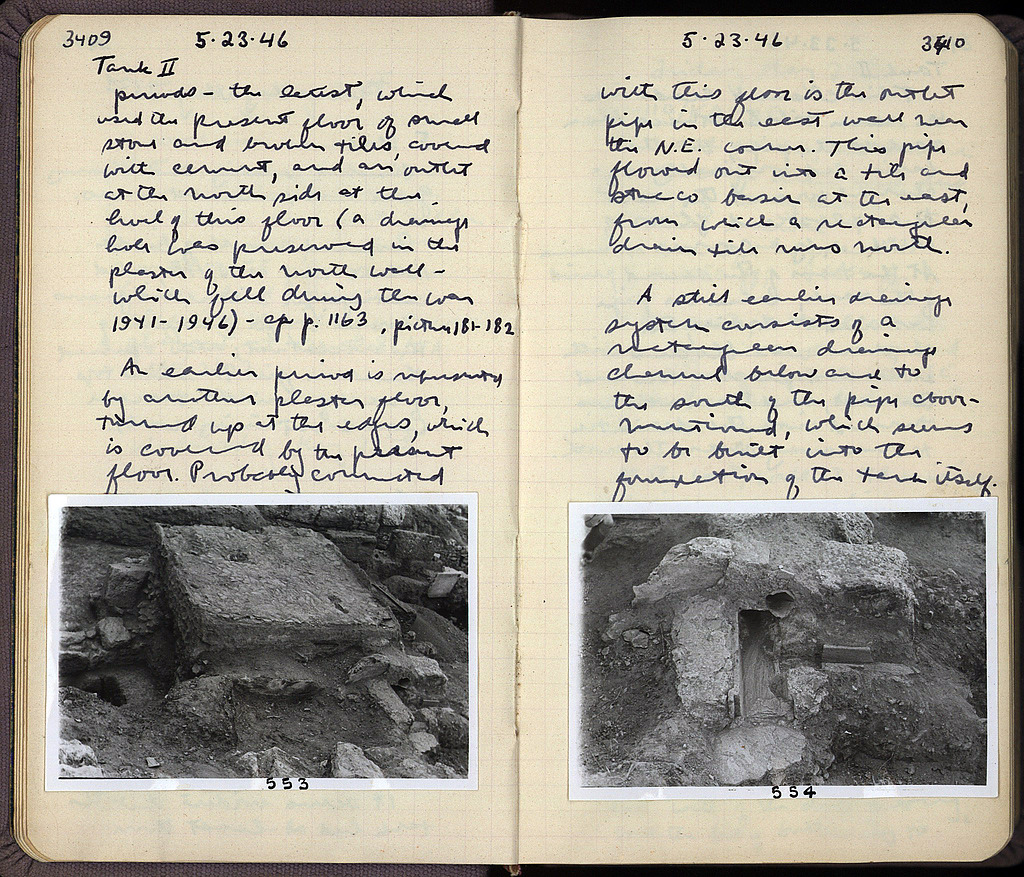 3409 5·23·46
Tank II
periods - the latest, which
used the present floor of small
stone and broken tiles, covered
with cement, and an outlet
at the north side at the
level of this floor (a drainage
hole was preserved in the
plaster of the north wall -
which fell during the war
1941-1946) - cp p. 1163, picture 181-182
An earlier period is represented
by another plaster floor,
turned up at the edges, which
is covered by the present
floor. Probably connected
553
5·23·46 3410
with this floor is the outlet
pipe in the east wall near
the N.E. corner. This pipe
flowed out into a tile and
stucco basin at the east,
from which a rectangular
drain tile runs north.
A still earlier drainage
system consists of a
rectangular drainage
channel below and to
the south of the pipe above-
mentioned, which seems
to be built into the
foundation of the tank itself.
554